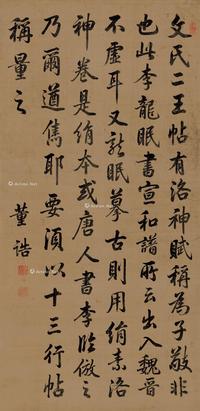 文氏二王帖有洛神賦稱為子敬非
也此李龍眠書宣和譜所云出入魏晉
不虛耳又龍眠摹古則用絹素洛
神卷是絹本或唐人書李臨倣之
乃爾遒雋耶要須以十三行帖
稱量之
董誥